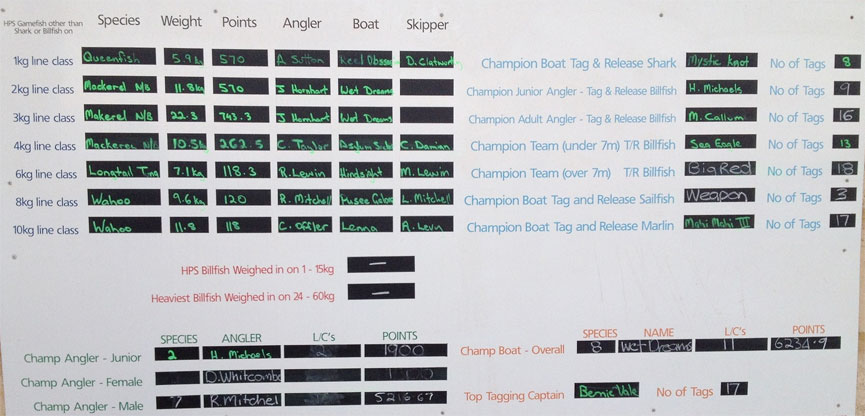 HPS Gamefish other than Shark or Billfish on
Species Weight Points Angler Boat Skipper
1kg line class Queenfish 5.9kg 570 A. Sutton Reel D. Clatworthy
2kg line class Mackerel N/B 11.8kg 570 J Hornhart Wet Dreams
3kg line class Makerel N/B 22.3 743.3 J Hornhart Wet Dreams
4kg line class Mackerel N/B 10.5kg 262.5 C. Taylor Asylum C. Damian
6kg line class Longtail Tna 7.1kg 118.3 R. Lewin Hindsight M. Lewin
8kg line class Wahoo 9.6kg 120 R. Mitchell L. Mitchell
10kg line class Wahoo 11.8 118 C. Offler Lenna A. Levn
Champion Boat Tag & Release Shark Mystic Knot No of Tags 8
Champion Junior Angler - Tag & Release Billfish H. Michaels No of Tags 9
Champion Adult Angler - Tag & Release Billfish M. Callum No of Tags 16
Champion Team (under 7m) T/R Billfish Sea Eagle No of Tags 13
Champion Team (over 7m) T/R Billfish Big Red No of Tags 18
Champion Boat Tag and Release Sailfish Weapon No of Tags 3
Champion Boat Tag and Release Marlin Mahi Mahi III No of Tags 17
HPS Billfish Weighed in on 1 - 15kg —
Heaviest Billfish Weighed in on 24 - 60kg —
SPECIES ANGLER L/C's POINTS
Champ Angler - Junior 2 H. Michaels 2 1900
Champ Angler - Female D. Whitcombe
Champ Angler - Male 7 R. Mitchel 5216.67
SPECIES NAME L/C's POINTS
Champ Boat - Overall 8 Wet Dreams 11 6234.9
Top Tagging Captain Bernie Vale No of Tags 17